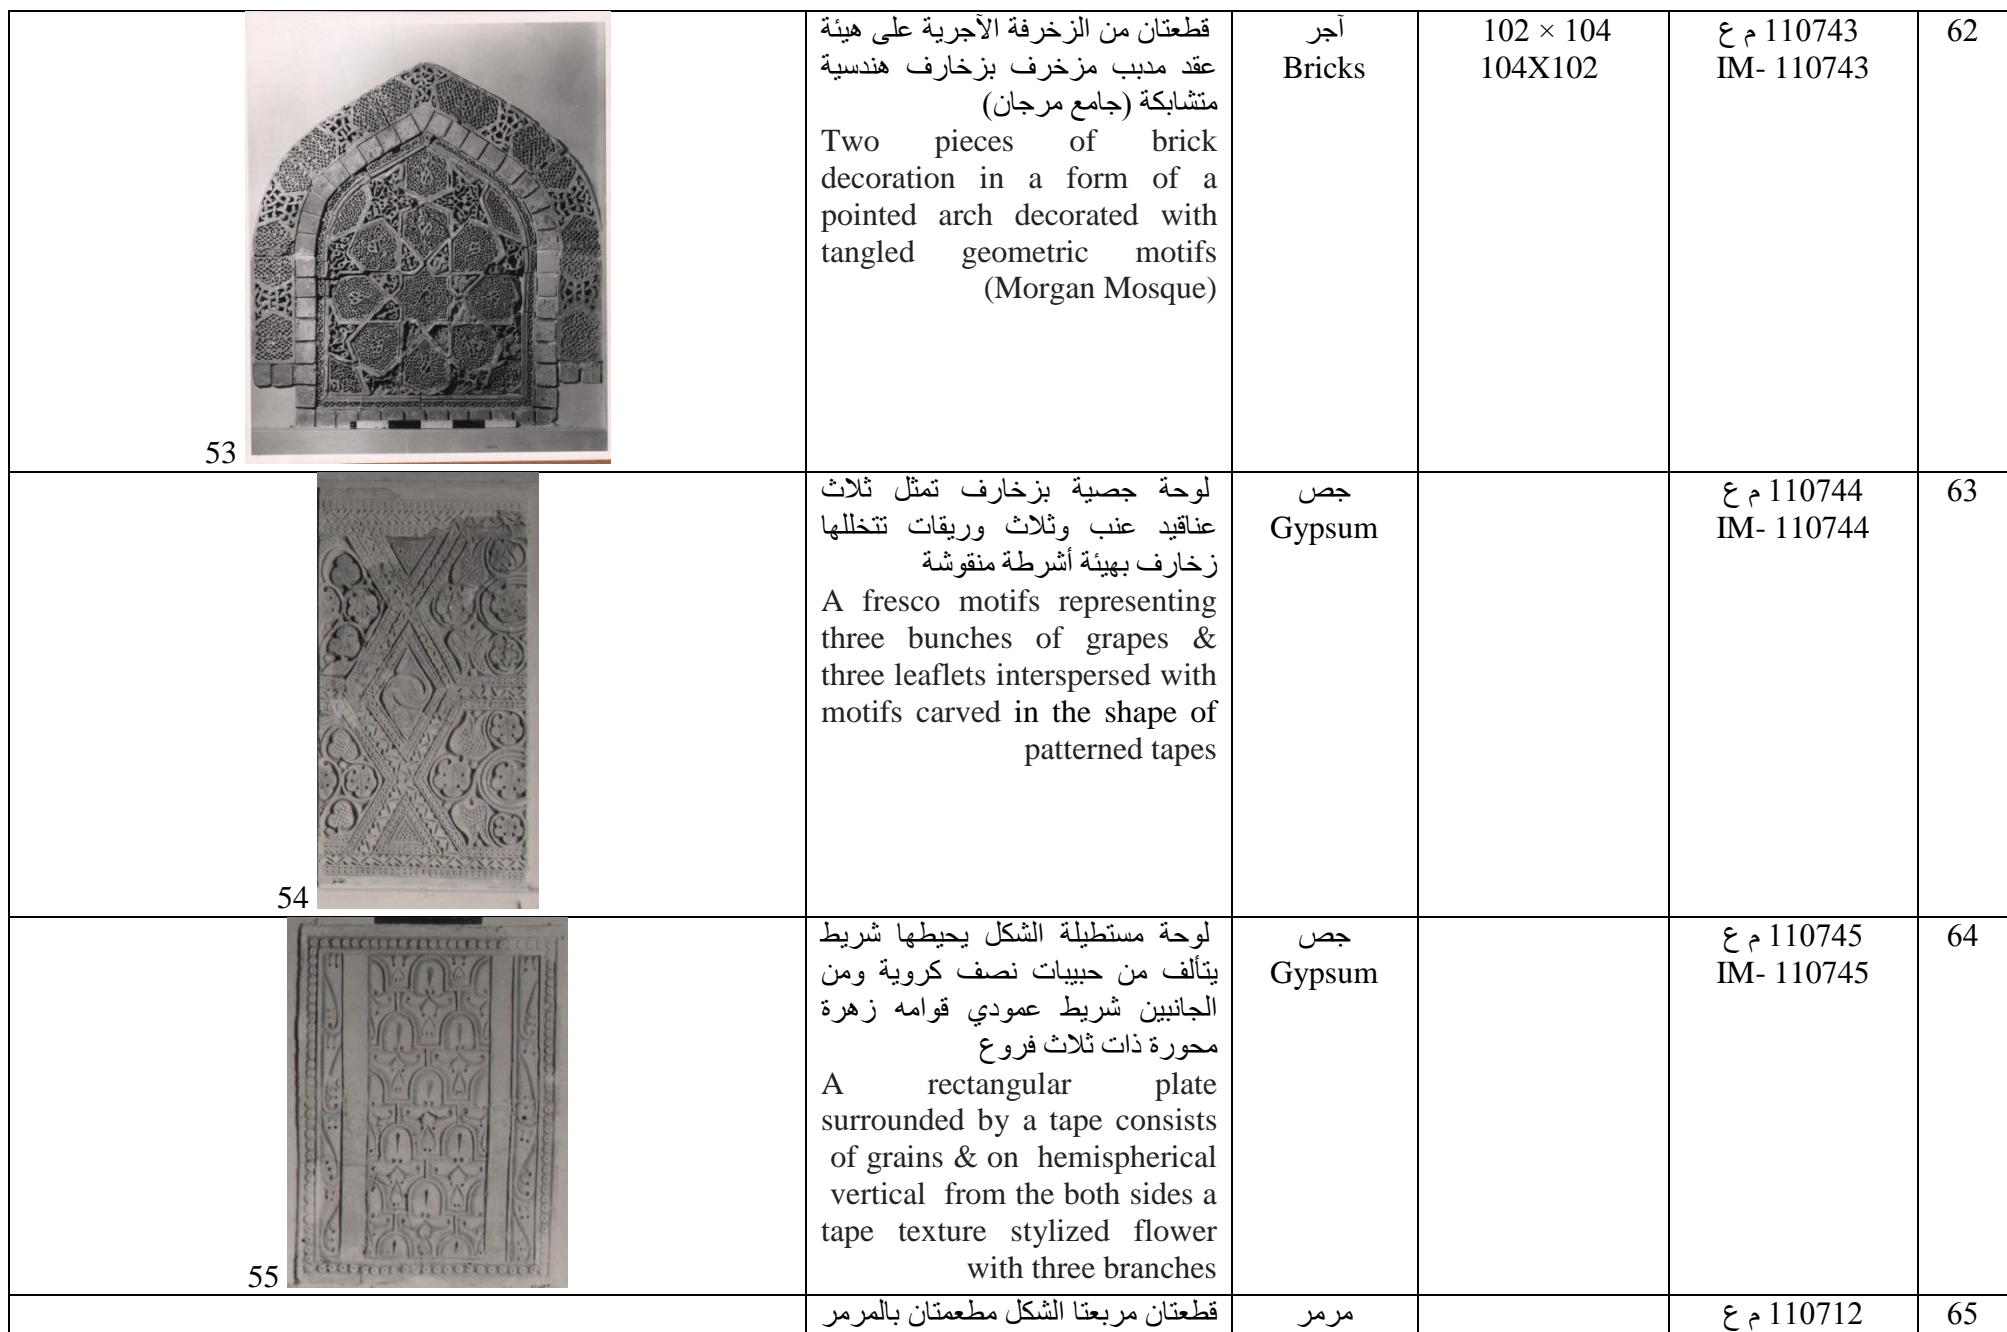 62
110743 م ع
IM- 110743
102 × 104
104X102
آجر
Bricks
قطعتان من الزخرفة الآجرية على هيئة
عقد مدبب مزخرف بزخارف هندسية
متشابكة (جامع مرجان)
Two pieces of brick
decoration in a form of a
pointed arch decorated with
tangled geometric motifs
(Morgan Mosque)
53
63
110744 م ع
IM- 110744
جص
Gypsum
لوحة جصية بزخارف تمثل ثلاث
عناقيد عنب وثلاث وريقات تتخللها
زخارف بهيئة أشرطة منقوشة
A fresco motifs representing
three bunches of grapes &
three leaflets interspersed with
motifs carved in the shape of
patterned tapes
54
64
110745 م ع
IM- 110745
جص
Gypsum
لوحة مستطيلة الشكل يحيطها شريط
يتألف من حبيبات نصف كروية ومن
الجانبين شريط عمودي قوامه زهرة
محورة ذات ثلاث فروع
A rectangular plate
surrounded by a tape consists
of grains & on hemispherical
vertical from the both sides a
tape texture stylized flower
with three branches
55
65
110712 م ع
مرمر
قطعتان مربعتا الشكل مطعمتان بالمرمر